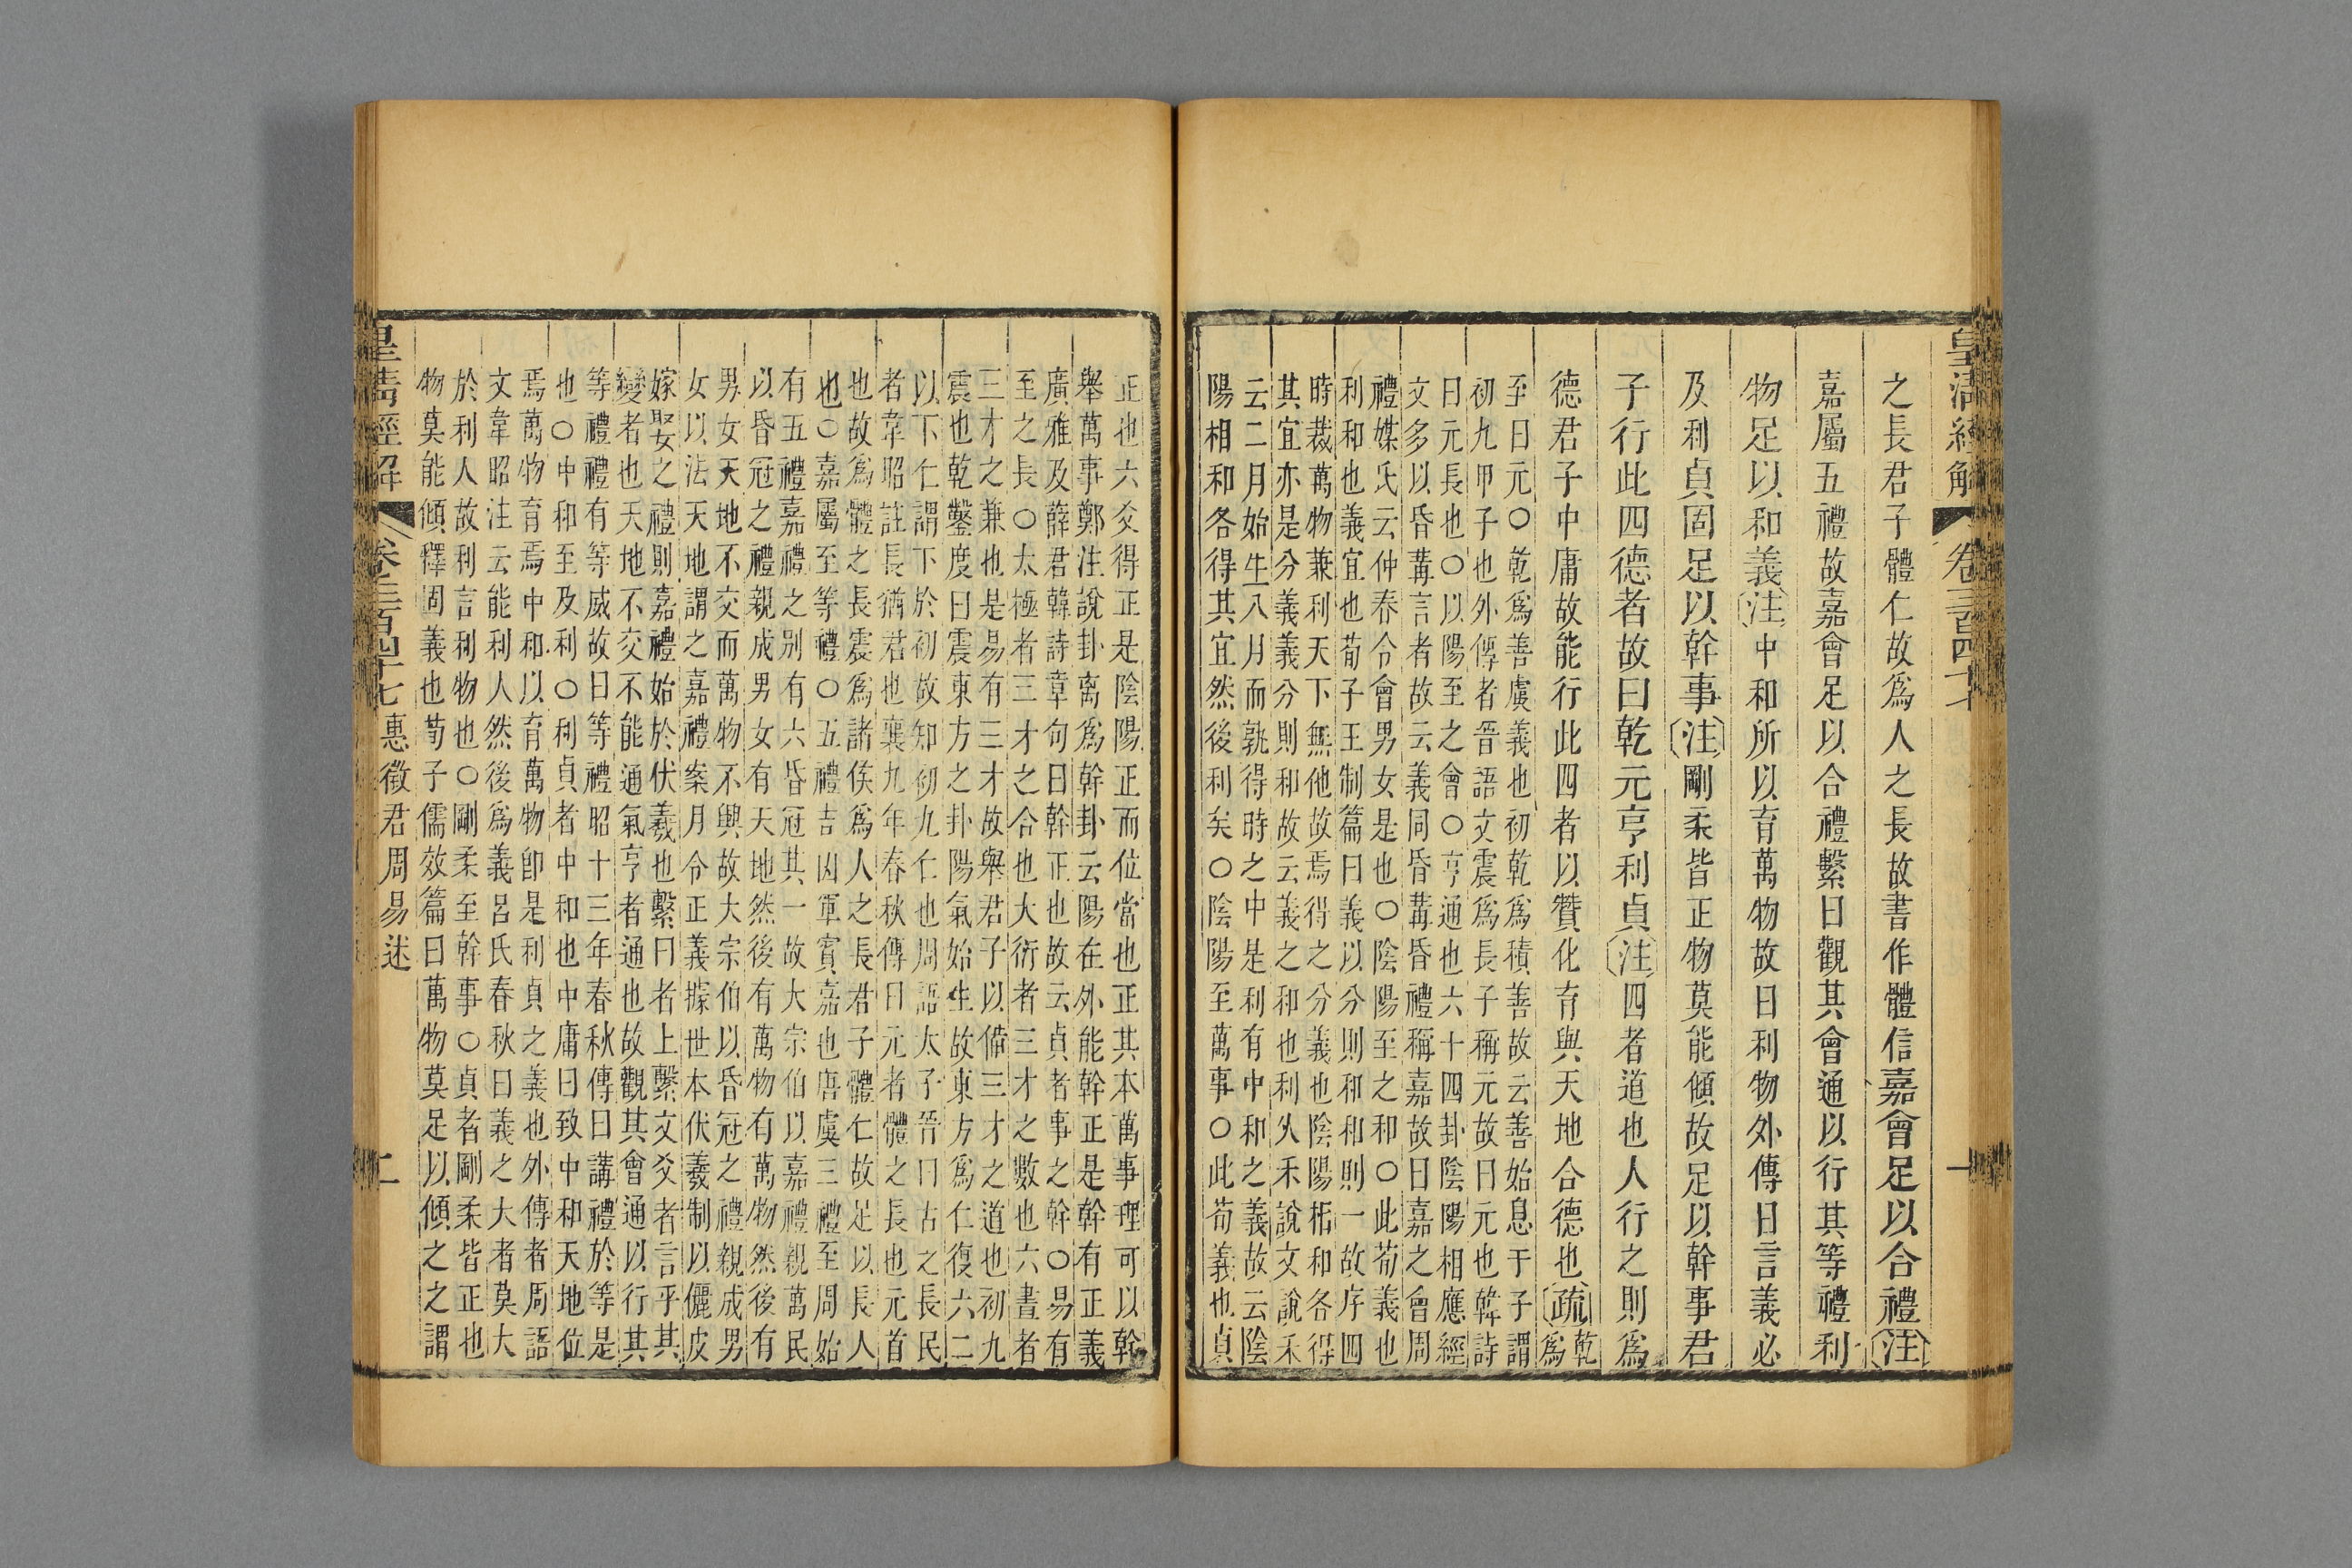 皇清經解 卷三百四十七 一
之長君子體仁故爲人之長故書作體信嘉會足以合禮注
嘉屬五禮故嘉會足以合禮繫曰觀其會通以行其等禮利
物足以和義注中和所以育萬物故曰利物外傳曰言義必
及利貞固足以幹事注剛柔皆正物莫能傾故足以幹事君
子行此四德者故曰乾元亨利貞注四者道也人行之則爲
德君子中庸故能行此四者以贊化育與天地合德也疏乾爲
至曰元〇乾爲善虞義也初乾爲積善故云善始息于子謂
初九甲子也外傳者晉語文震爲長子稱元故曰元也韓詩
曰元長也〇以陽至之會〇亨通也六十四卦陰陽相應經
文多以昏冓言者故云義同昏冓昏禮稱嘉故曰嘉之會周
禮媒氏云仲春令會男女是也〇陰陽至之和〇此荀義也
利和也義宜也荀子王制篇曰義以分則和和則一故序四
時裁萬物兼利天下無他故焉得之分義也陰陽相和各得
其宜亦是分義義分則和故云義之和也利从禾說文說禾
云二月始生八月而孰得時之中是利有中和之義故云陰
陽相和各得其宜然後利矣〇陰陽至萬事〇此荀義也貞
正也六爻得正是陰陽正而位當也正其本萬事理可以幹
舉萬事鄭注說卦离爲幹卦云陽在外能幹正是幹有正義
廣雅及薛君韓詩章句曰幹正也故云貞者事之幹〇易有
至之長〇太極者三才之合也大衍者三才之數也六畫者
三才之兼也是易有三才故舉君子以備三才之道也初九
震也乾鑿度曰震東方之卦陽氣始生故東方爲仁復六二
以下仁謂下於初故知初九仁也周語太子晉曰古之長民
者韋昭註長猶君也襄九年春秋傳曰元者體之長也元首
也故爲體之長震爲諸侯爲人之長君子體仁故足以長人
也〇嘉屬至等禮〇五禮吉凶軍賓嘉也唐虞三禮至周始
有五禮嘉禮之别有六昏冠其一故大宗伯以嘉禮親萬民
以昏冠之禮親成男女有天地然後有萬物有萬物然後有
男女天地不交而萬物不興故大宗伯以昏冠之禮親成男
女以法天地謂之嘉禮案月令正義據世本伏羲制以儷皮
嫁娶之禮則嘉禮始於伏羲也繫曰者上繫文爻者言乎其
變者也天地不交不能通氣亨者通也故觀其會通以行其
等禮禮有等威故曰等禮昭十三年春秋傳曰講禮於等是
也〇中和至及利〇利貞者中和也中庸曰致中和天地位
焉萬物育焉中和以育萬物卽是利貞之義也外傳者周語
文韋昭注云能利人然後爲義呂氏春秋曰義之大者莫大
於利人故利言利物也〇剛柔至幹事〇貞者剛柔皆正也
物莫能傾釋固義也荀子儒效篇曰萬物莫足以傾之之謂
皇清經解 卷三百四十七惠徵君周易述 二